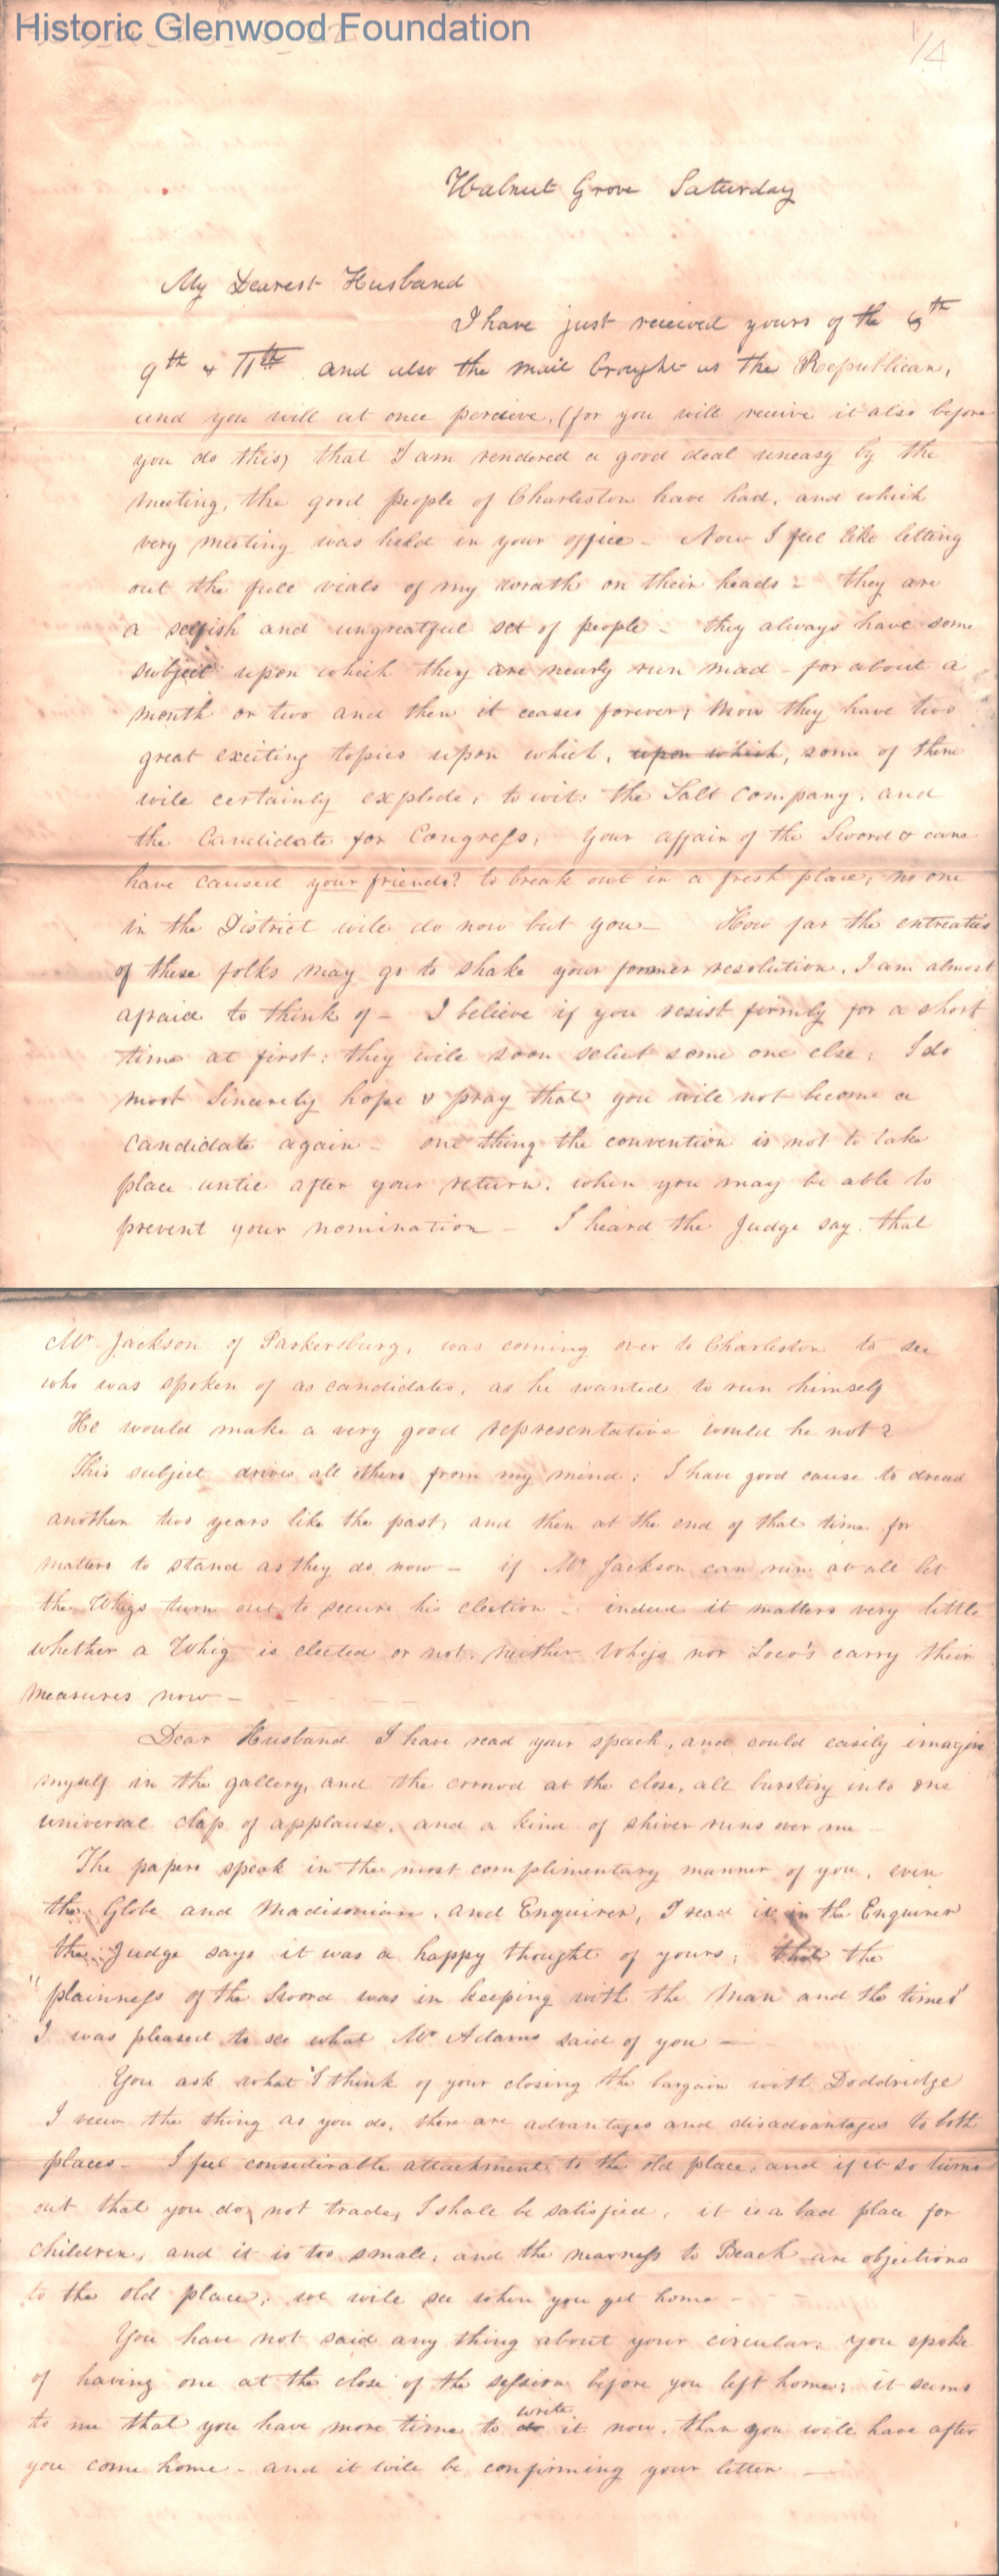 Historic Glenwood Foundation
1/4
Walnut Grove Saturday
My Dearest Husband
I have just received yours of the 6th
9th & 11th and also the mail brought us the Republican,
and you will at once perceive, (for you will receive it also before
you do this) that I am rendered a good deal uneasy by the
meeting, the good people of Charleston have had, and which
very meeting was held in your office - Now I feel like letting
out the full vials of my wrath on their heads - they are
a selfish and ungreatful set of people - they always have some
subject upon which they are nearly run mad - for about a
month or two and then it ceases forever; Now they have two
great exciting topics upon which, upon which, some of them
will certainly explode, to wit: the Salt Company, and
the Candidate for Congress, Your affair of the Sword & cane
have caused your friends? to break out in a fresh place; no one
in the District will do now but you - How far the entreaties
of these folks may go to shake your former resolution, I am almost
afraid to think of - I believe if you resist firmly for a short
time at first; they will soon select some one else; I do
most Sincerely hope & pray that you will not become a
Candidate again - one thing the convention is not to take
place until after your return, when you may be able to
prevent your nomination - I heard the Judge say that
Mr Jackson of Parkersburg, was coming over to Charleston to see
who was spoken of as candidates, as he wanted to run himself
He would make a very good representative would he not?
This subject drives all others from my mind; I have good cause to dread
another two years like the past, and then at the end of that time for
matters to stand as they do now - if Mr Jackson can run at all let
the Whigs turn out to secure his election - indeed it matters very little
whether a Whig is elected or not, neither Whigs nor Loco's carry their
measures now -
Dear Husband I have read your speech, and could easily imagine
myself in the gallery, and the crowd at the close, all bursting into one
universal clap of applause, and a kind of shiver runs over me -
The papers speak in the most complimentary manner of you, even
the Globe and Madisonian, and Enquirer, I read it in the Enquirer
the Judge says it was a happy thought of yours; that the
"plainness of the Sword was in keeping with the Man and the times"
I was pleased to see what Mr Adams said of you -
You ask what I think of your closing the bargain with Doddridge
I view the thing as you do, there are advantages and disadvantages to both
places - I feel considerable attachment to the old place, and if it so turns
out that you do not trade, I shall be satisfied; it is a bad place for
children, and it is too small, and the nearness to Beach are objections
to the old place; we will see when you get home -
You have not said any thing about your circular; you spoke
of having one at the close of the session before you left home; it seems
to me that you have more time to do write it now, than you will have after
you come home - and it will be confirming your letter -